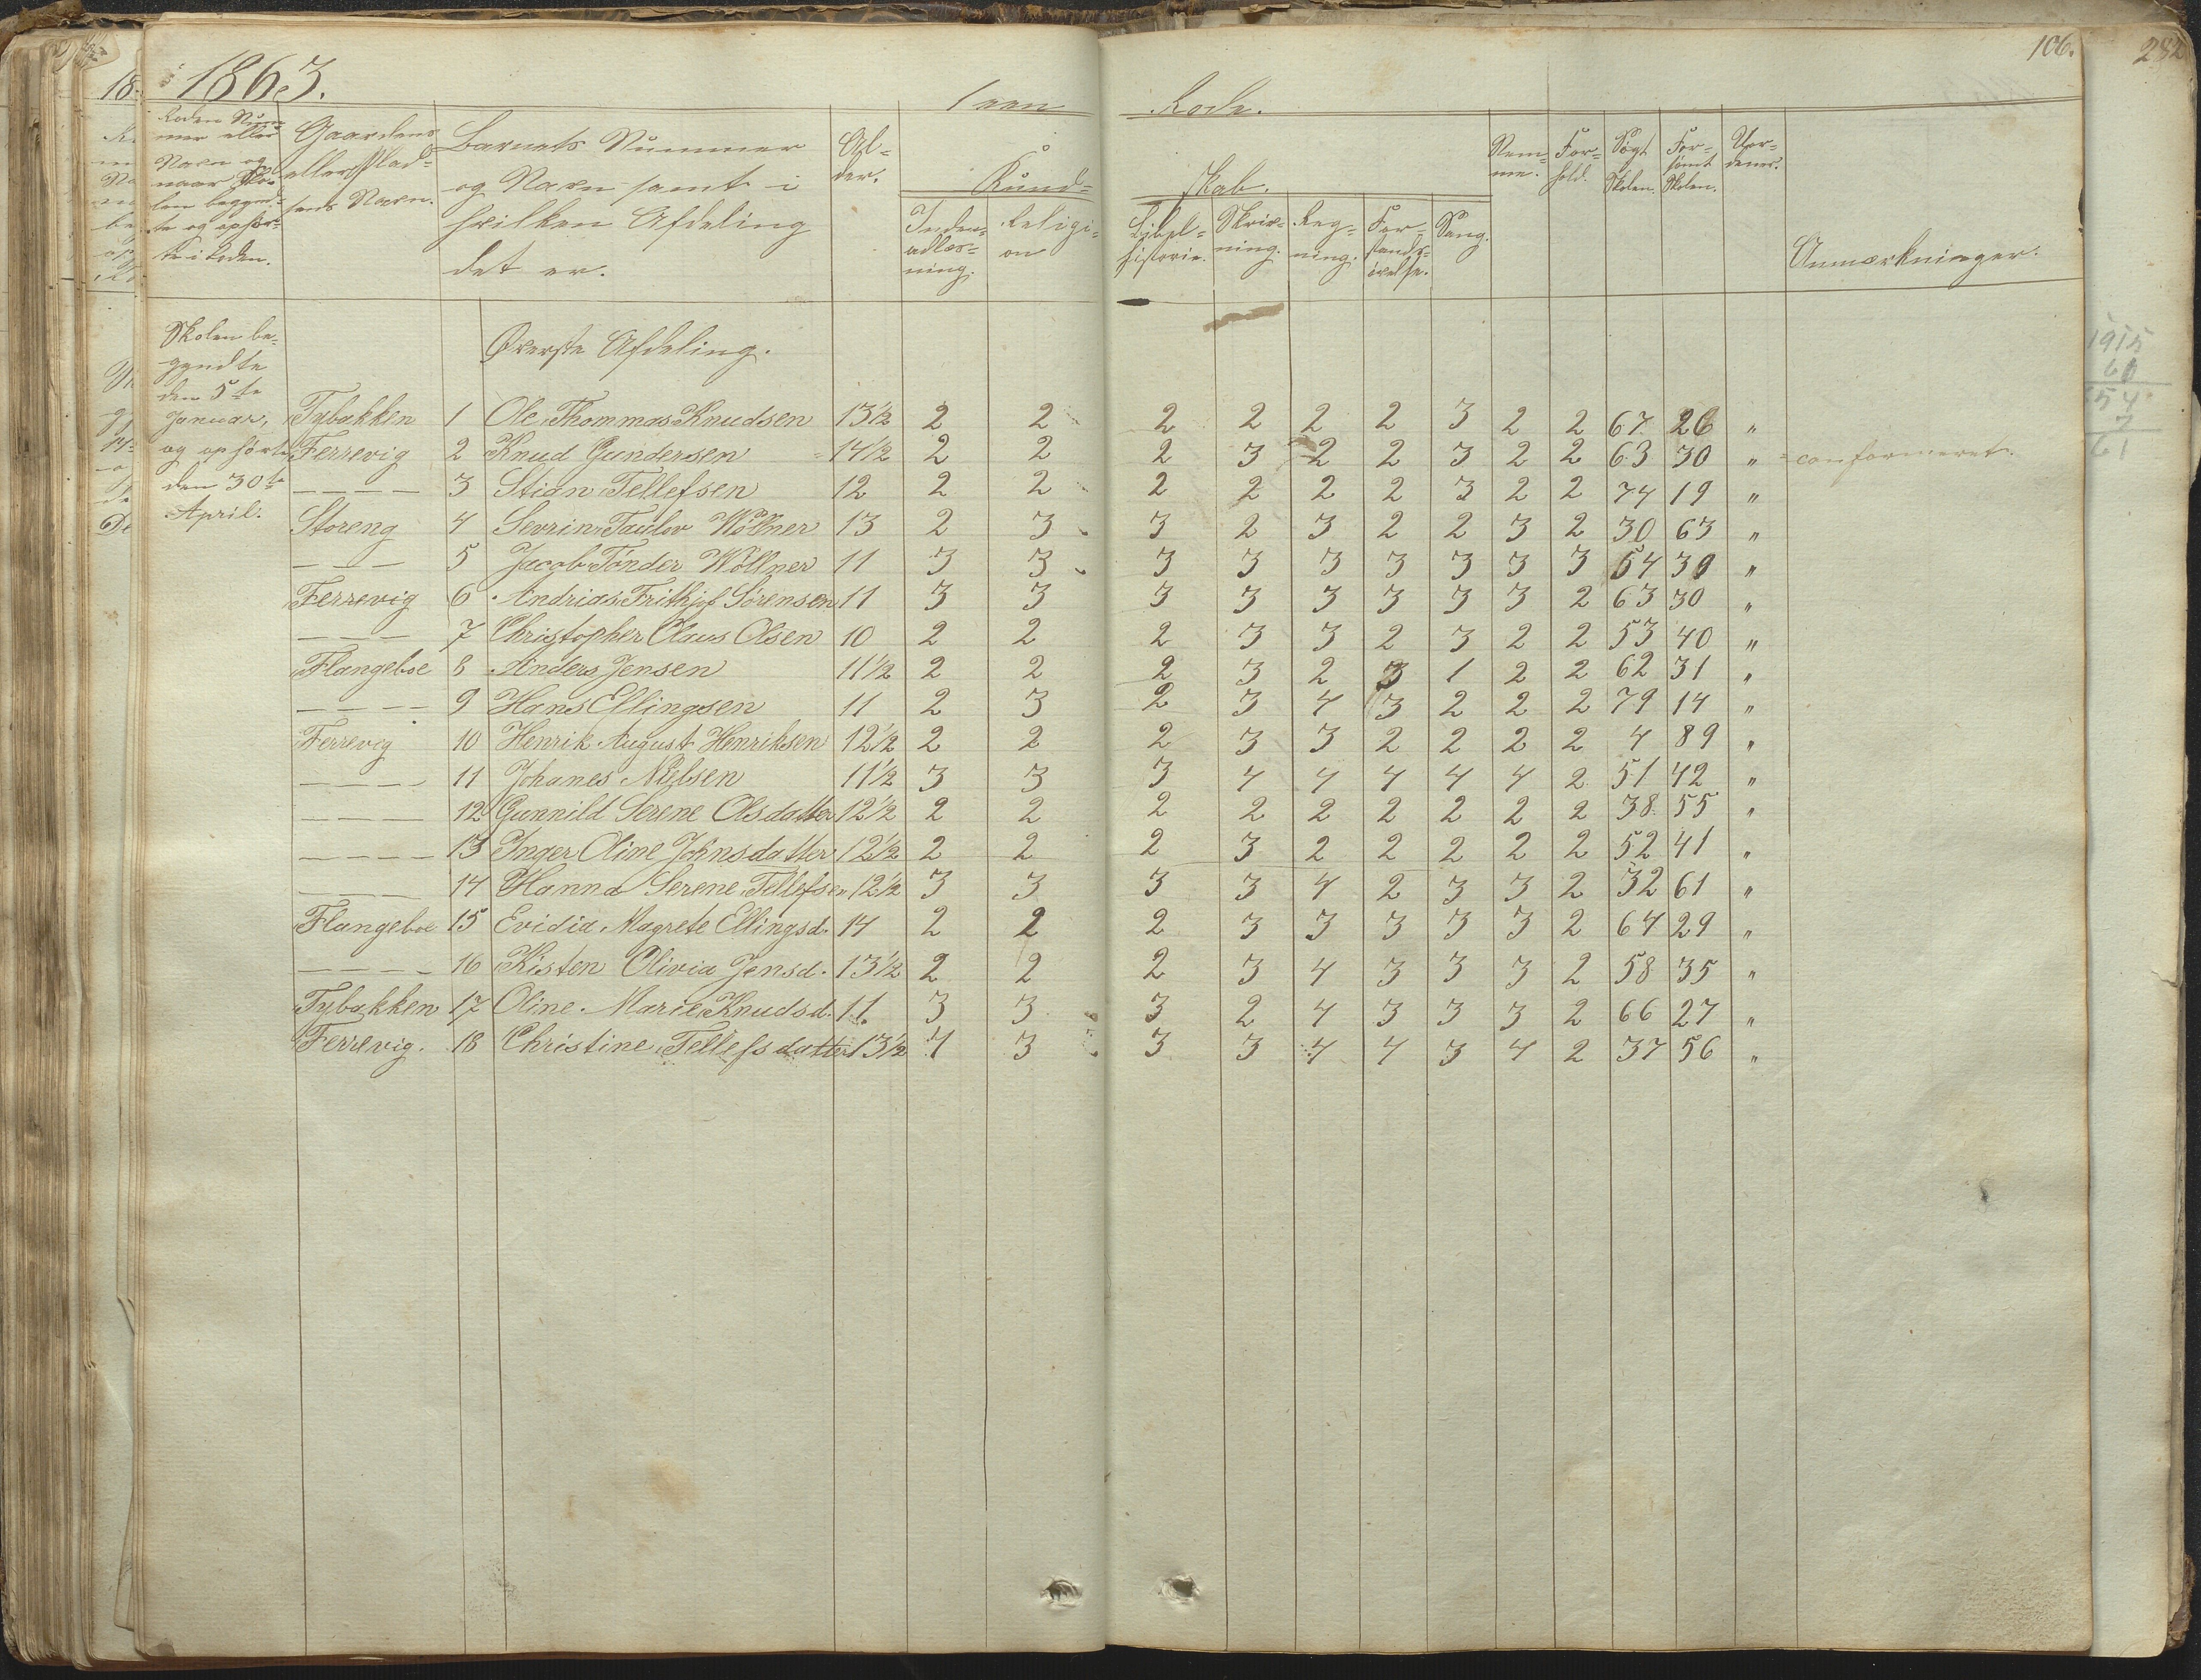 1863.
1ern Rode.
106.
282
Roden Num-
mer eller
Navn og
naar Sko-
len begyn-
te og ophør-
te i Roden.
Gaardens
eller Plad-
sens Navn.
Barnets Nummer
og Navn samt i
hvilken Afdeling
det er.
Al-
der.
Kund-
skab.
Inden-
adlæs-
ning.
Religi-
on
Bibel-
historie.
Skriv-
ning.
Reg-
ning.
For-
stands-
øvelse.
Sang.
Nem-
me.
For-
hold.
Søgt
Skolen.
For-
sømt
Skolen.
Uor-
dener.
Anmærkninger.
Skolen be-
gyndte
den 5te
Januar,
og ophørte
den 30te
April.
Øverste Afdeling.
Tybakken 1 Ole Thommas Knudsen 13½ 2 2 2 2 2 2 3 2 2 67 26 "
Ferrevig 2 Knud Gundersen 14½ 2 2 2 3 2 2 3 2 2 63 30 " conformeret.
— — — — 3 Stian Tellefsen 12 2 2 2 2 2 2 3 2 2 74 19 "
Storeng 4 Sevrin Taulov Wöllner 13 2 3 3 2 3 2 2 3 2 30 63 "
— — — 5 Jacob Tönder Wöllner 11 3 3 3 3 3 3 3 3 3 54 39 "
Ferrevig 6 Andrias Frithjof Sörensen 11 3 3 3 3 3 3 3 3 2 63 30 "
— — — 7 Christopher Olaus Olsen 10 2 2 2 3 3 2 3 2 2 53 40 "
Flangeboe 8 Anders Jensen 11½ 2 2 2 3 2 3 1 2 2 62 31 "
— — — — 9 Hans Ellingsen 11 2 3 2 3 4 3 2 2 2 79 14 "
Ferrevig 10 Henrik August Henriksen 12½ 2 2 2 3 3 2 2 2 2 4 89 "
— — — — 11 Johanes Nielsen 11½ 3 3 3 4 4 4 4 4 2 51 42 "
— — — — 12 Gunnild Serene Olsdatter 12½ 2 2 2 2 2 2 2 2 2 38 55 "
— — — — 13 Inger Oline Johnsdatter 12½ 2 2 2 3 2 2 2 2 2 52 41 "
— — — — 14 Hanna Serene Tellefsen 12½ 3 3 3 3 4 2 3 3 2 32 61 "
Flangeboe 15 Evidia Magrete Ellingsd. 14 2 2 2 3 3 3 3 3 2 64 29 "
— — — — 16 Kisten Olivia Jensd. 13½ 2 2 2 3 4 3 3 3 2 58 35 "
Tybakken 17 Oline Marie Knudsd. 11 3 3 3 2 4 3 3 3 2 66 27 "
Ferrevig. 18 Christine Tellefsdatter 13½ 4 3 3 3 4 4 3 4 2 37 56 "
1915
60
54
7
61